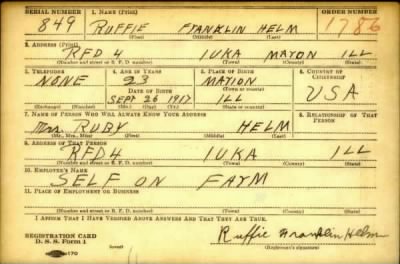 SERIAL NUMBER 1. NAME (Print) ORDER NUMBER
849 RUFFIE FRANKLIN HELM 1786
(First) (Middle) (Last)
2. ADDRESS (Print)
RFD 4 IUKA MAYON ILL
(Number and street or R. F. D. number) (Town) (County) (State)
3. TELEPHONE 4. AGE IN YEARS 5. PLACE OF BIRTH 6. COUNTRY OF CITIZENSHIP
NONE 23 MATION
DATE OF BIRTH (Town) (County)
SEPT 26 1917 ILL USA
(Exchange) (Number) (Mo.) (Day) (Yr.) (State or country)
7. NAME OF PERSON WHO WILL ALWAYS KNOW YOUR ADDRESS 8. RELATIONSHIP OF THAT PERSON
Mrs. RUBY HELM
(Mr., Mrs., Miss) (First) (Middle) (Last)
9. ADDRESS OF THAT PERSON
RFD 4 IUKA ILL
(Number and street or R. F. D. number) (Town) (County) (State)
10. EMPLOYER'S NAME
SELF ON FAYM
11. PLACE OF EMPLOYMENT OR BUSINESS
(Number and street or R. F. D. number) (Town) (County) (State)
I AFFIRM THAT I HAVE VERIFIED ABOVE ANSWERS AND THAT THEY ARE TRUE.
REGISTRATION CARD
D. S. S. Form 1 (over) Ruffie Franklin Helm
(Registrant's signature)